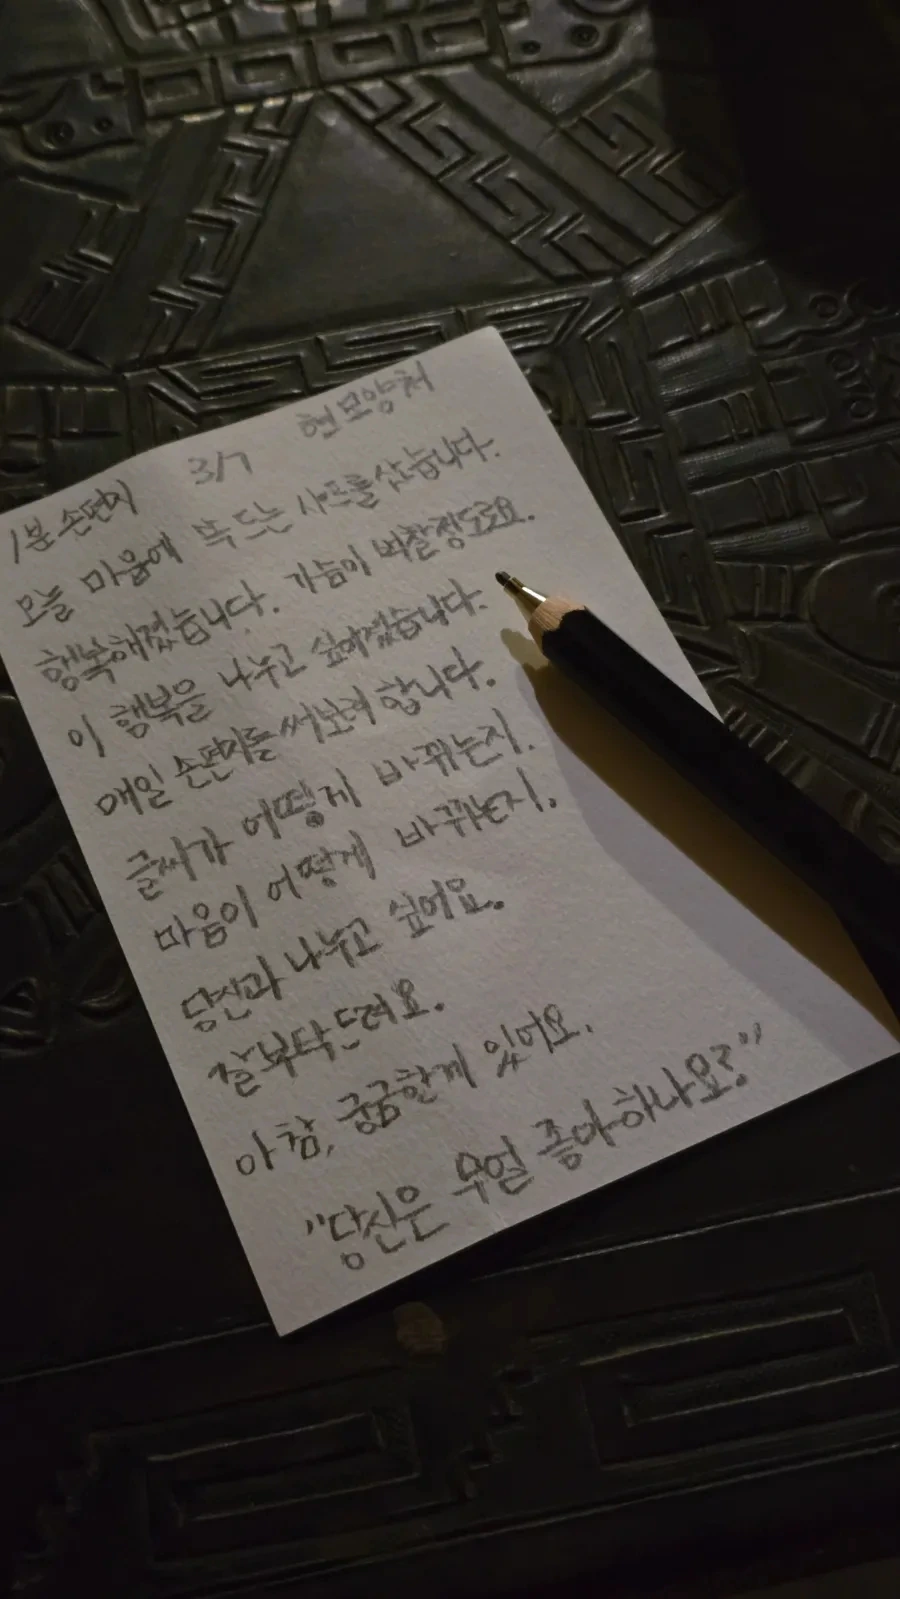 1분 손편지 3/7 현모양처
오늘 마음에 쏙 드는 샤프를 샀습니다.
행복해졌습니다. 가슴이 벅찰정도로요.
이 행복을 나누고 싶어졌습니다.
매일 손편지를 써보려 합니다.
글씨가 어떻게 바뀌는지.
마음이 어떻게 바뀌는지.
당신과 나누고 싶어요.
잘 부탁드려요.
아 참, 궁금한게 있어요.
"당신은 무얼 좋아하나요?"